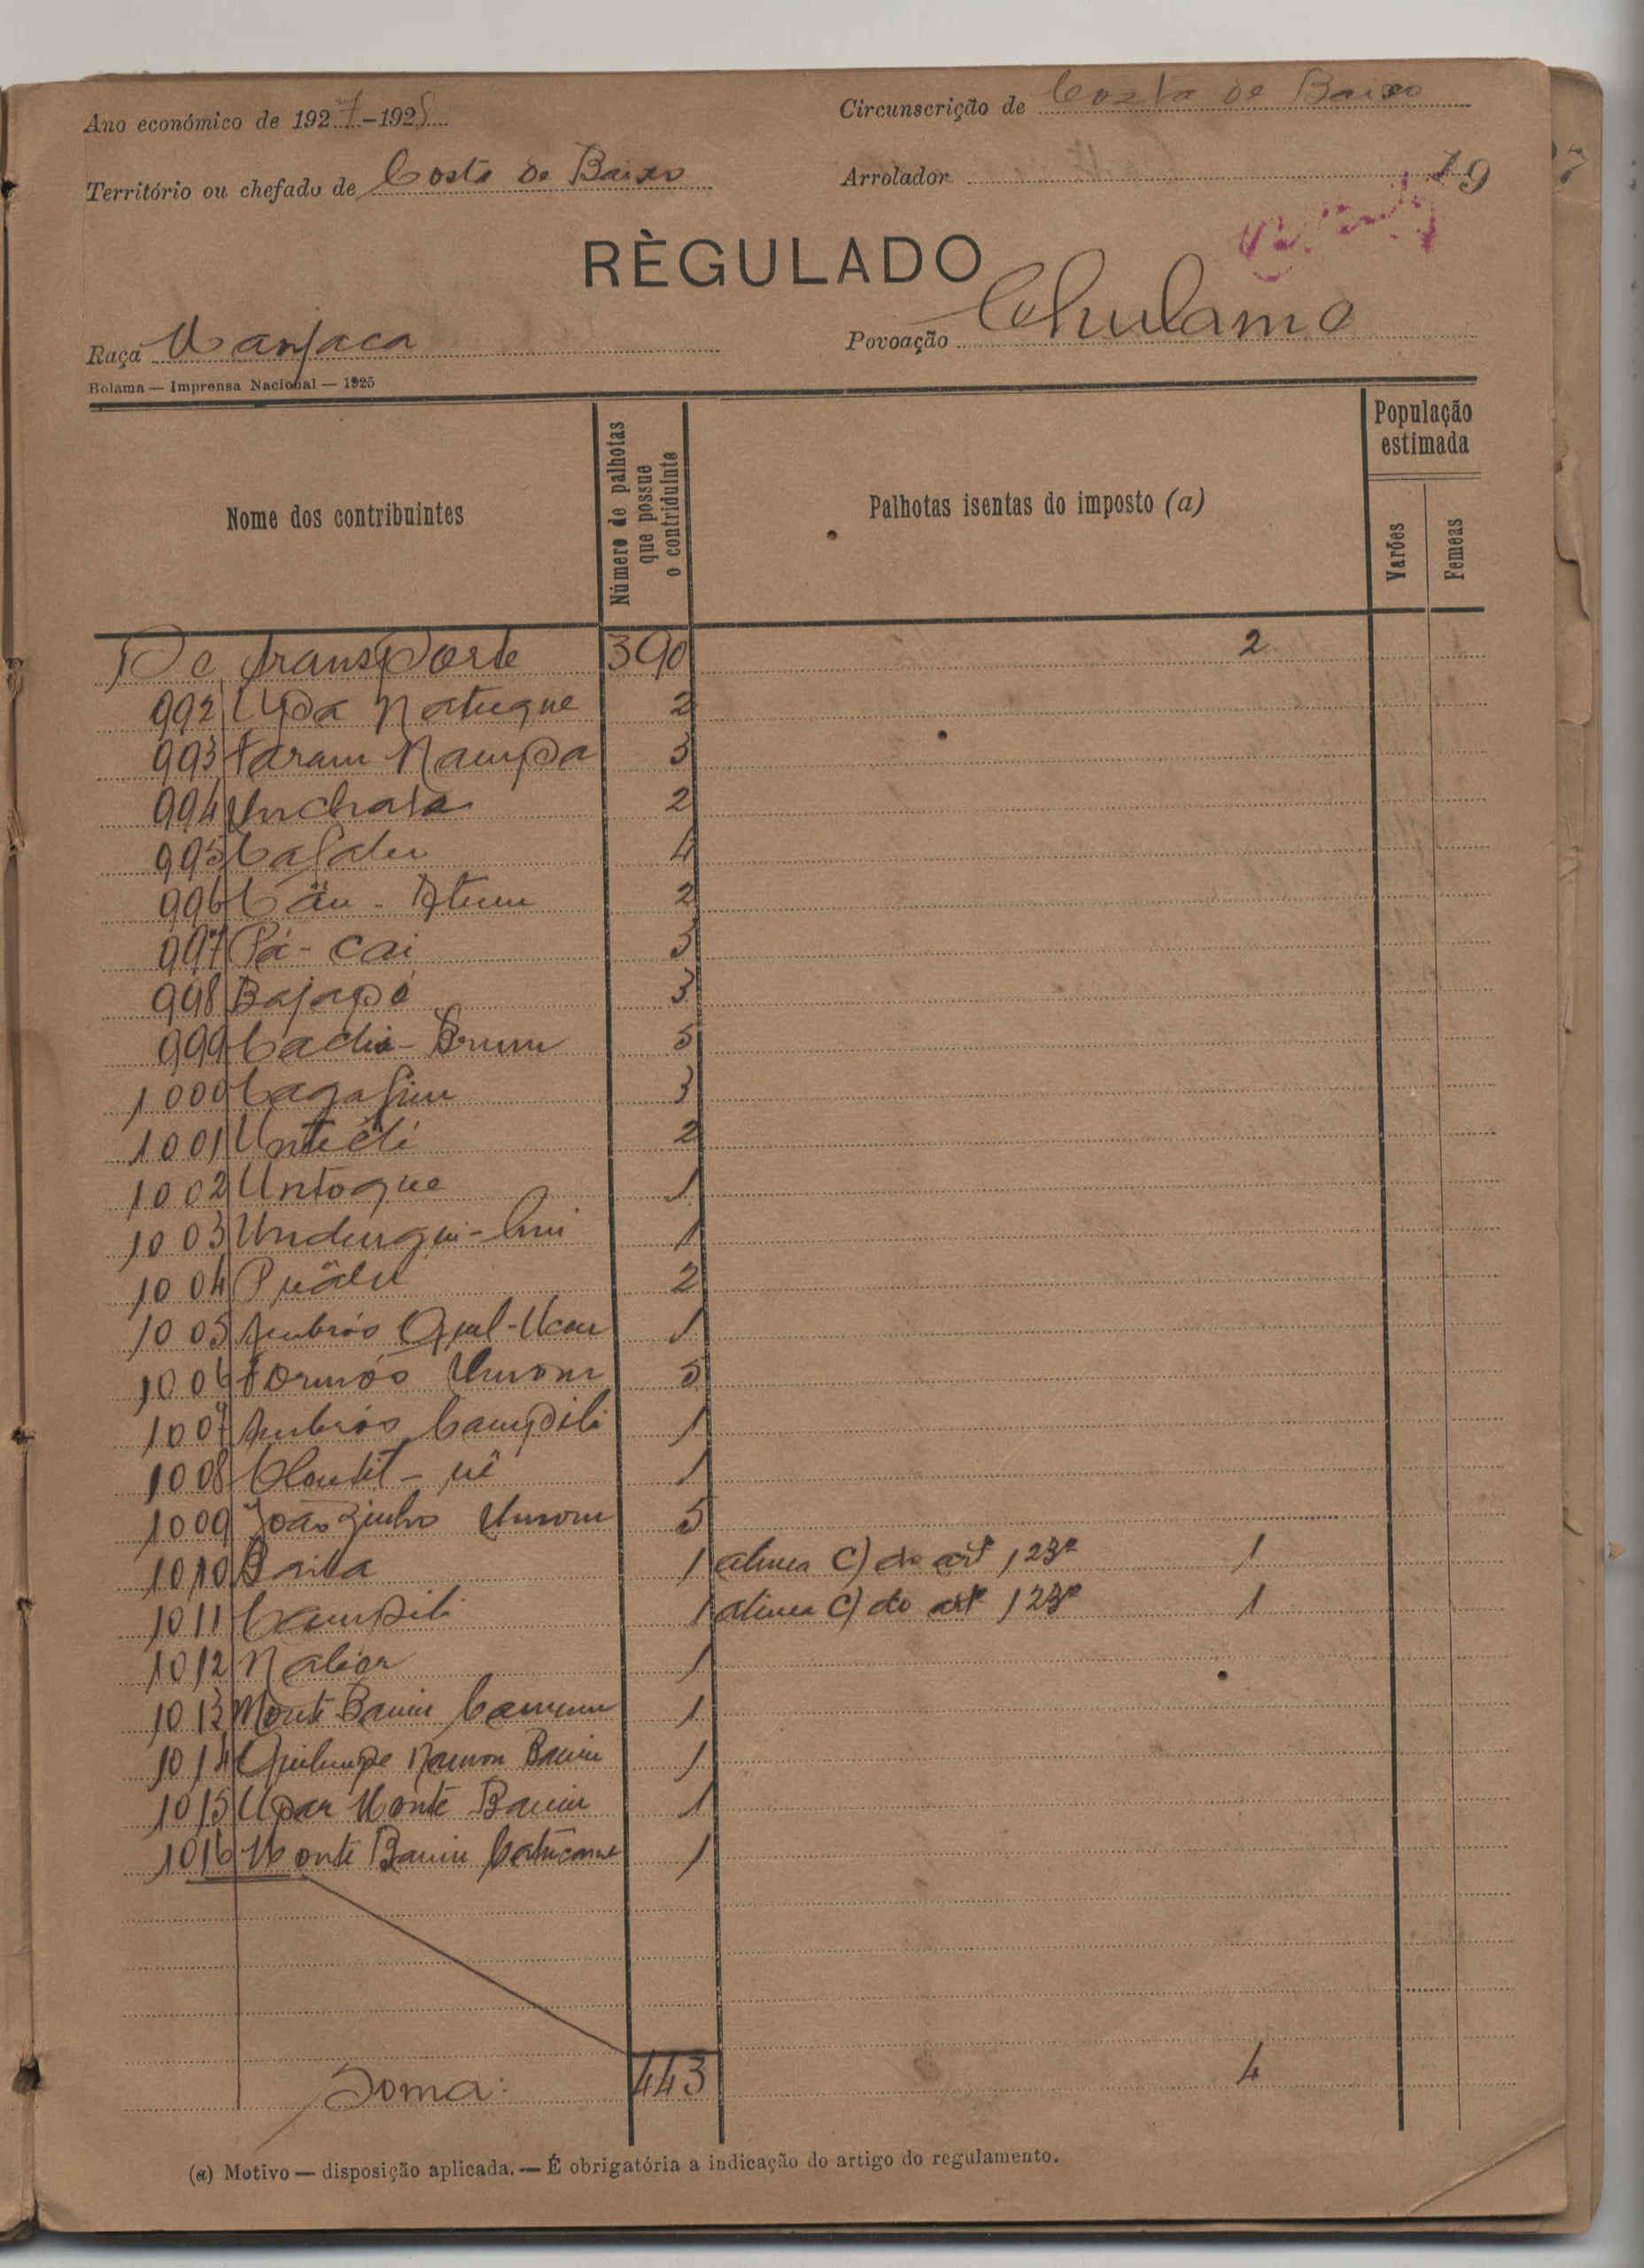 Ano económico de 1927-1928
Circunscrição de Costa de Baixo
Território ou chefado de Costa de Baixo
Arrolador
19
RÈGULADO
Raça Manjaca
Povoação Chulame
Bolama — Imprensa Nacional — 1925
Nome dos contribuintes
Número de palhotas que possue o contriduinte
Palhotas isentas do imposto (a)
População estimada
Varões
Femeas
De transporte 390 2
992 Upa Natuque 2
993 Faram Nampa 3
994 Unchala 2
995 Cafater 4
996 Cäu - Atum 2
997 Pá-cai 3
998 Bajapó 3
999 Cachi-Brum 5
1000 Cagafim 3
1001 Untêti 2
1002 Untoque 1
1003 Undurqui- 1
1004 Puädu 2
1005 Ambrós 1
1006 Formós Unrom 5
1007 Ambrós Campili 1
1008 1
1009 Joãozinho Unrom 5
1010 Barba 1 alinea C) do artº 123º 1
1011 Campili 1 alinea C) do artº 123º 1
1012 Nabior 1
1013 Monte Baum Camum 1
1014 Quilumpe Namon Baum 1
1015 Upar Monte Baum 1
1016 Monte Baum Catucame 1
Soma: 443 4
(a) Motivo — disposição aplicada. — É obrigatória a indicação do artigo do regulamento.